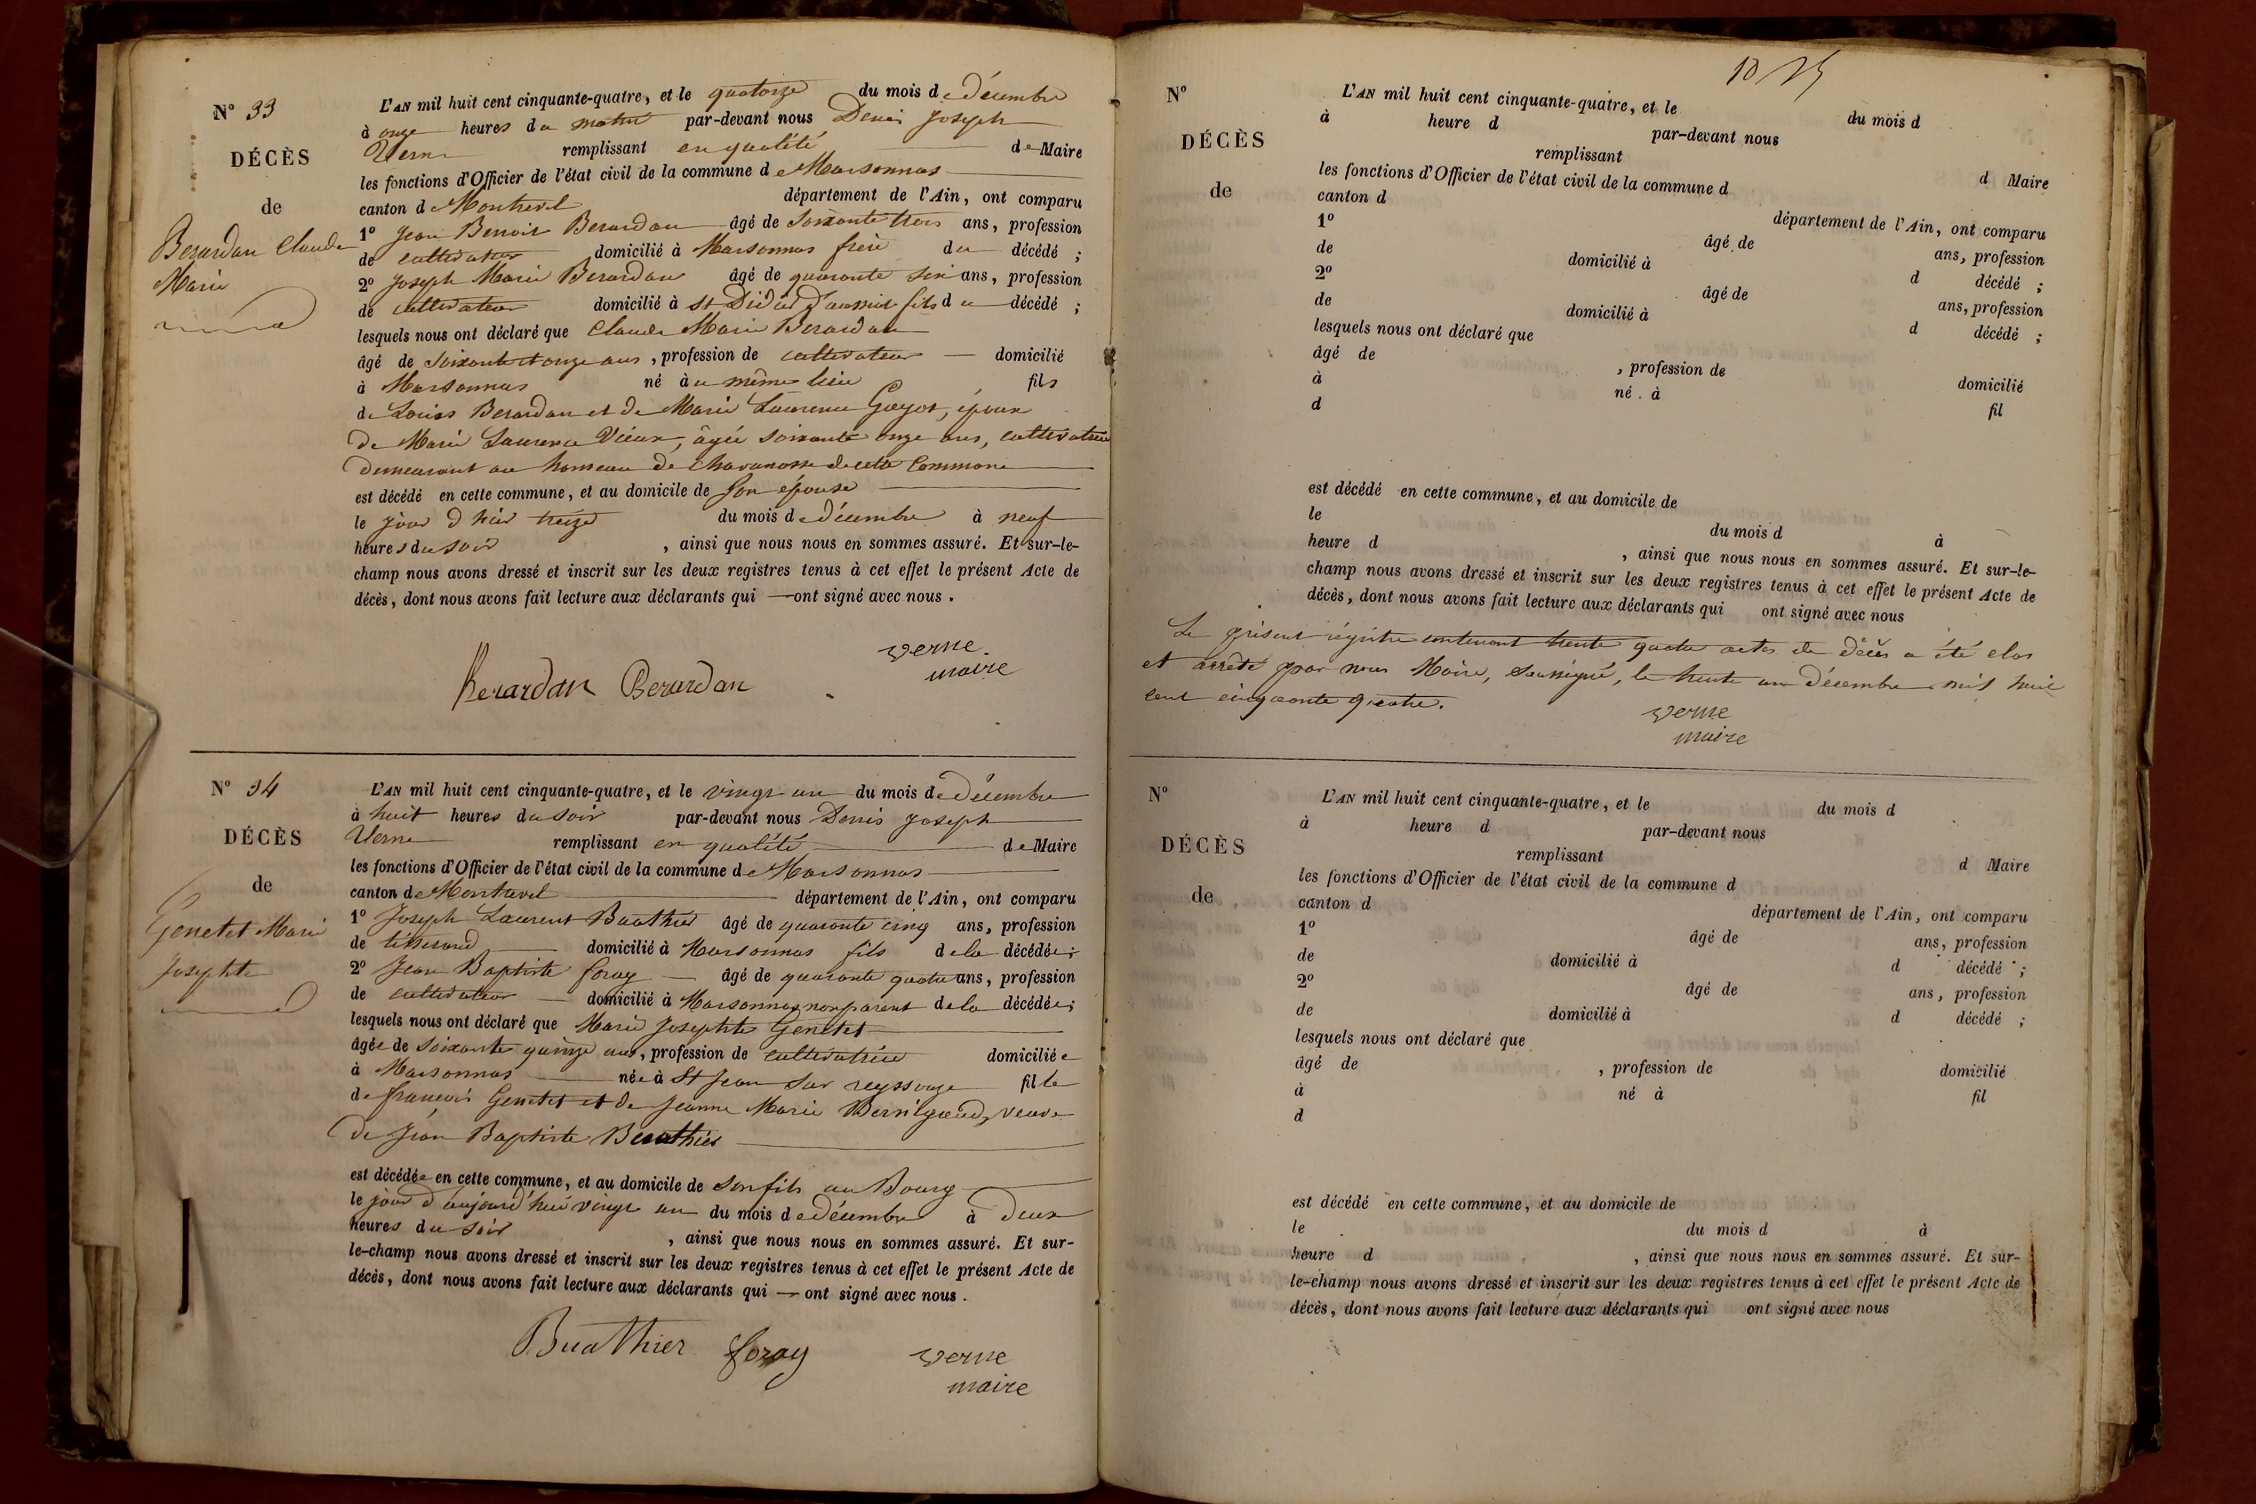 N° 33
DÉCÈS
de
Berardan Claude
Marie
L'AN mil huit cent cinquante-quatre, et le quatorze du mois de décembre
à onze heures du matin par-devant nous Denis Joseph
Verne remplissant en qualité de Maire
les fonctions d'Officier de l'état civil de la commune de Marsonnas
canton de Montrevel département de l'Ain, ont comparu
1° Jean Benoit Berardan âgé de soixante trois ans, profession
de cultivateur domicilié à Marsonnas frère du décédé ;
2° Joseph Marie Berardan âgé de quarante six ans, profession
de cultivateur domicilié à St Didier d'aussiat fils du décédé ;
lesquels nous ont déclaré que Claude Marie Berardan
âgé de soixante et onze ans, profession de cultivateur domicilié
à Marsonnas né à u même lieu fils
de Louis Berardan et de Marie Laurence Goyot, époux
de Marie Laurence Vieux, âgée soixante onze ans, cultivatrice
demeurant au hameau de Chavanosse de cette Commune
est décédé en cette commune, et au domicile de son épouse
le jour d'hier treize du mois de décembre à neuf
heures du soir, ainsi que nous nous en sommes assuré. Et sur-le-
champ nous avons dressé et inscrit sur les deux registres tenus à cet effet le présent Acte de
décès, dont nous avons fait lecture aux déclarants qui ont signé avec nous.
Berardan Berardan verne
maire
N° 34
DÉCÈS
de
Genetet Marie
Josephte
L'AN mil huit cent cinquante-quatre, et le vingt un du mois de décembre
à huit heures du soir par-devant nous Denis Joseph
Verne remplissant en qualité de Maire
les fonctions d'Officier de l'état civil de la commune de Marsonnas
canton de Montrevel département de l'Ain, ont comparu
1° Joseph Laurent Buathier âgé de quarante cinq ans, profession
de tisserand domicilié à Marsonnas fils de la décédée ;
2° Jean Baptiste foray âgé de quarante quatre ans, profession
de cultivateur domicilié à Marsonnas non parent de la décédée ;
lesquels nous ont déclaré que Marie Josephte Genetet
âgée de soixante quinze ans, profession de cultivatrice domiciliée
à Marsonnas née à St Jean sur reyssouze fille
de francois Genetet et de Jeanne Marie veuve
de Jean Baptiste Buathier
est décédée en cette commune, et au domicile de son fils au Bourg
le jour d'aujourd'hui vingt un du mois de décembre à deux
heures du soir, ainsi que nous nous en sommes assuré. Et sur-
le-champ nous avons dressé et inscrit sur les deux registres tenus à cet effet le présent Acte de
décès, dont nous avons fait lecture aux déclarants qui ont signé avec nous.
Buathier foray verne
maire
N°
DÉCÈS
de
L'AN mil huit cent cinquante-quatre, et le du mois d
à heure d par-devant nous
remplissant d Maire
les fonctions d'Officier de l'état civil de la commune d
canton d département de l'Ain, ont comparu
1° âgé de ans, profession
de domicilié à d décédé ;
2° âgé de ans, profession
de domicilié à d décédé ;
lesquels nous ont déclaré que
âgé de , profession de domicilié
à né à fil
d
est décédé en cette commune, et au domicile de
le du mois d à
heure d , ainsi que nous nous en sommes assuré. Et sur-le-
champ nous avons dressé et inscrit sur les deux registres tenus à cet effet le présent Acte de
décès, dont nous avons fait lecture aux déclarants qui ont signé avec nous
Le présent régistre contenant trente quatre actes de décès a été clos
et arrêté par nous Maire, soussigné, le trente un décembre mil huit
cent cinquante quatre.
verne
maire
N°
DÉCÈS
de
L'AN mil huit cent cinquante-quatre, et le du mois d
à heure d par-devant nous
remplissant d Maire
les fonctions d'Officier de l'état civil de la commune d
canton d département de l'Ain, ont comparu
1° âgé de ans, profession
de domicilié à d décédé ;
2° âgé de ans, profession
de domicilié à d décédé ;
lesquels nous ont déclaré que
âgé de , profession de domicilié
à né à fil
d
est décédé en cette commune, et au domicile de
le du mois d à
heure d , ainsi que nous nous en sommes assuré. Et sur-
le-champ nous avons dressé et inscrit sur les deux registres tenus à cet effet le présent Acte de
décès, dont nous avons fait lecture aux déclarants qui ont signé avec nous